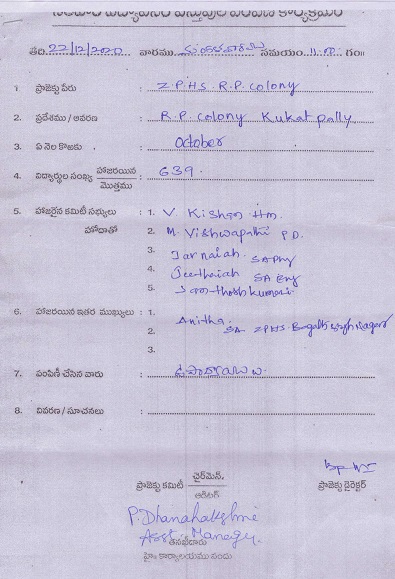 తేది: 22/12/2020 వారము మంగళవారము సమయం: 11.00 గం॥
1. ప్రాజెక్టు పేరు : Z.P.H.S. R.P. Colony
2. ప్రదేశము / ఆవరణ : R.P. Colony Kukatpally
3. ఏ నెల కొఱకు : October
4. విద్యార్థుల సంఖ్య హాజరయిన మొత్తము : 639.
5. హాజరైన కమిటీ సభ్యులు హోదాతో : 1. V. Kishan Hm.
2. M. Vishwapathi P.D.
3. Jarnaiah SA Phy
4. Jeethaiah SA Eng
5. Santhosh kumari
6. హాజరయిన ఇతర ముఖ్యులు : 1. Anitha.
2. SA ZPHS.
3.
7. పంపిణీ చేసిన వారు :
8. వివరణ / సూచనలు :
ప్రాజెక్టు కమిటీ ఛైర్మెన్,
ఆడిటర్
ప్రాజెక్టు డైరెక్టర్
P. Dhanalakshmi
Asst Manager.
తనిఖీదారు
హైం కార్యాలయము నందు